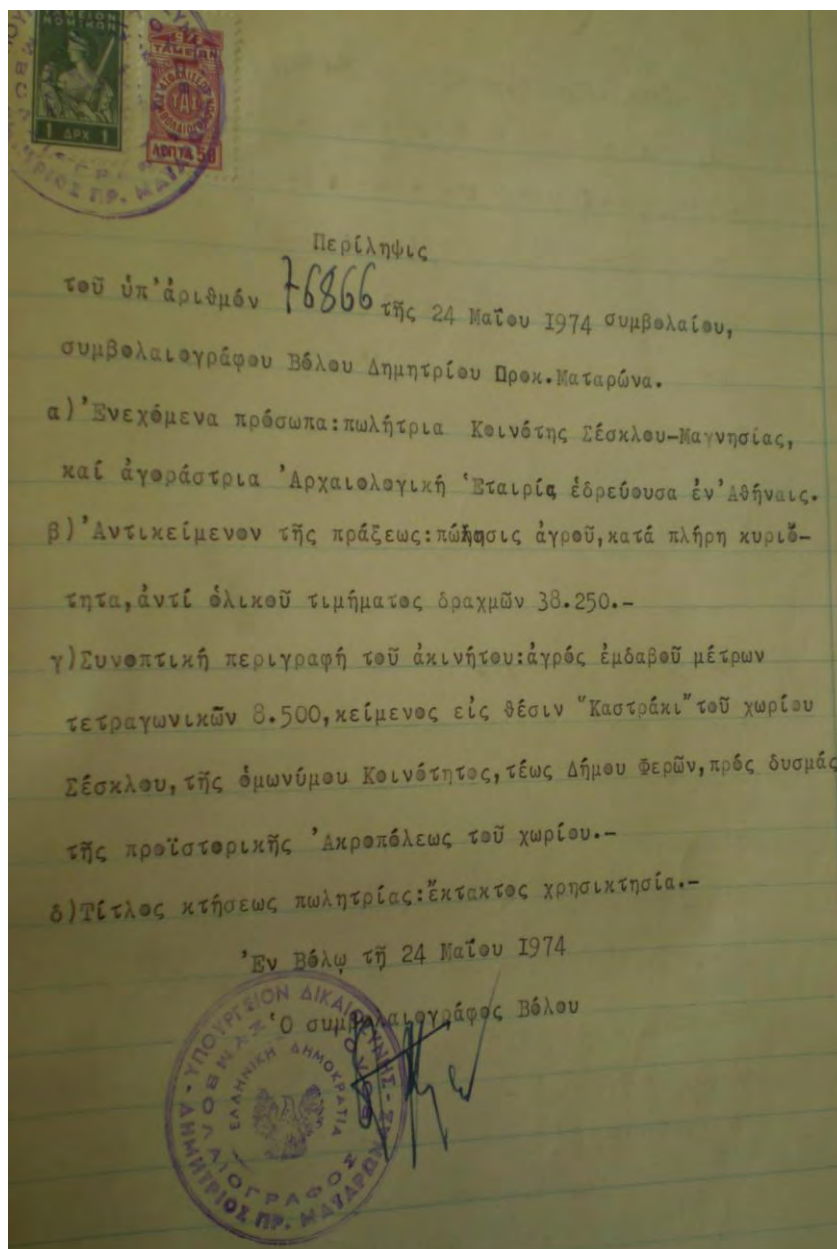 ΤΑΜΕΙΟΝ
ΝΟΜΙΚΩΝ
1 ΔΡΧ 1
ΤΑΜΕΙΩΝ
ΤΑΣ
ΛΕΠΤΑ 50
Περίληψις
τοῦ ὑπ'ἀριθμόν 76866 τῆς 24 Μαΐου 1974 συμβολαίου,
συμβολαιογράφου Βόλου Δημητρίου Προκ.Ματαρώνα.
α)'Ενεχόμενα πρόσωπα:πωλήτρια Κοινότης Σέσκλου-Μαγνησίας,
καί ἀγοράστρια 'Αρχαιολογική 'Εταιρία ἑδρεύουσα ἐν'Αθήναις.
β)'Αντικείμενον τῆς πράξεως:πώλησις ἀγροῦ,κατά πλήρη κυριό-
τητα,ἀντί ὁλικοῦ τιμήματος δραχμῶν 38.250.-
γ)Συνοπτική περιγραφή τοῦ ἀκινήτου:ἀγρός ἐμδαβοῦ μέτρων
τετραγωνικῶν 8.500,κείμενος εἰς θέσιν "Καστράκι"τοῦ χωρίου
Σέσκλου,τῆς ὁμωνύμου Κοινότητος,τέως Δήμου Φερῶν,πρός δυσμάς
τῆς προϊστορικῆς 'Ακροπόλεως τοῦ χωρίου.-
δ)Τίτλος κτήσεως πωλητρίας:ἔκτακτος χρησικτησία.-
'Εν Βόλῳ τῇ 24 Μαΐου 1974
'Ο συμβολαιογράφος Βόλου
ΥΠΟΥΡΓΕΙΟΝ ΔΙΚΑΙΟΣΥΝΗΣ
ΣΥΜΒΟΛΑΙΟΓΡΑΦΟΣ
ΕΛΛΗΝΙΚΗ ΔΗΜΟΚΡΑΤΙΑ
ΔΗΜΗΤΡΙΟΣ ΠΡ.